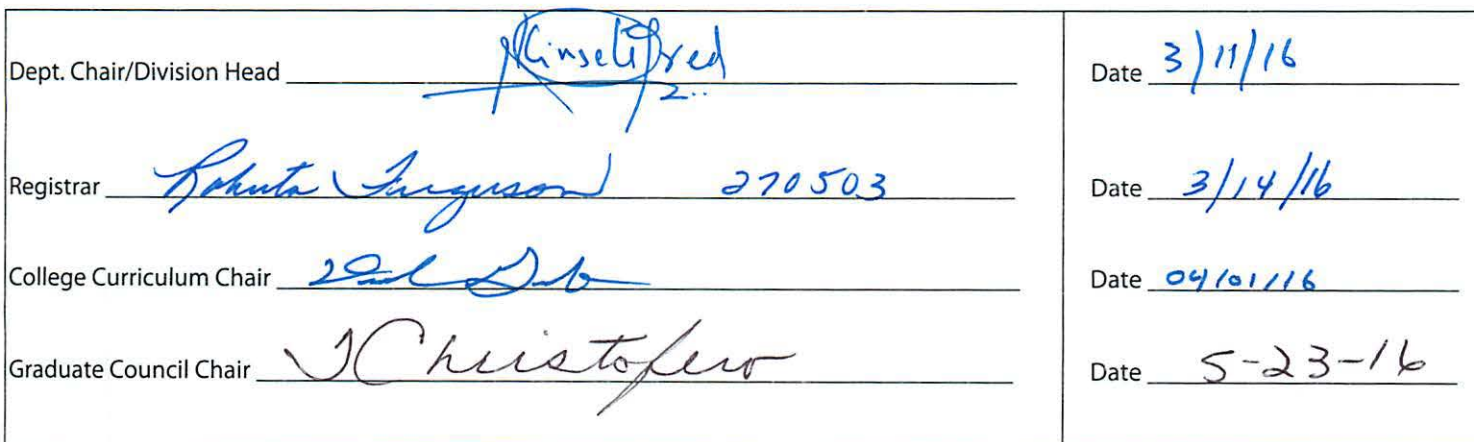 Dept. Chair/Division Head Date 3/11/16
Registrar Ferguson 270503 Date 3/14/16
College Curriculum Chair Date 04/01/16
Graduate Council Chair Christofero Date 5-23-16